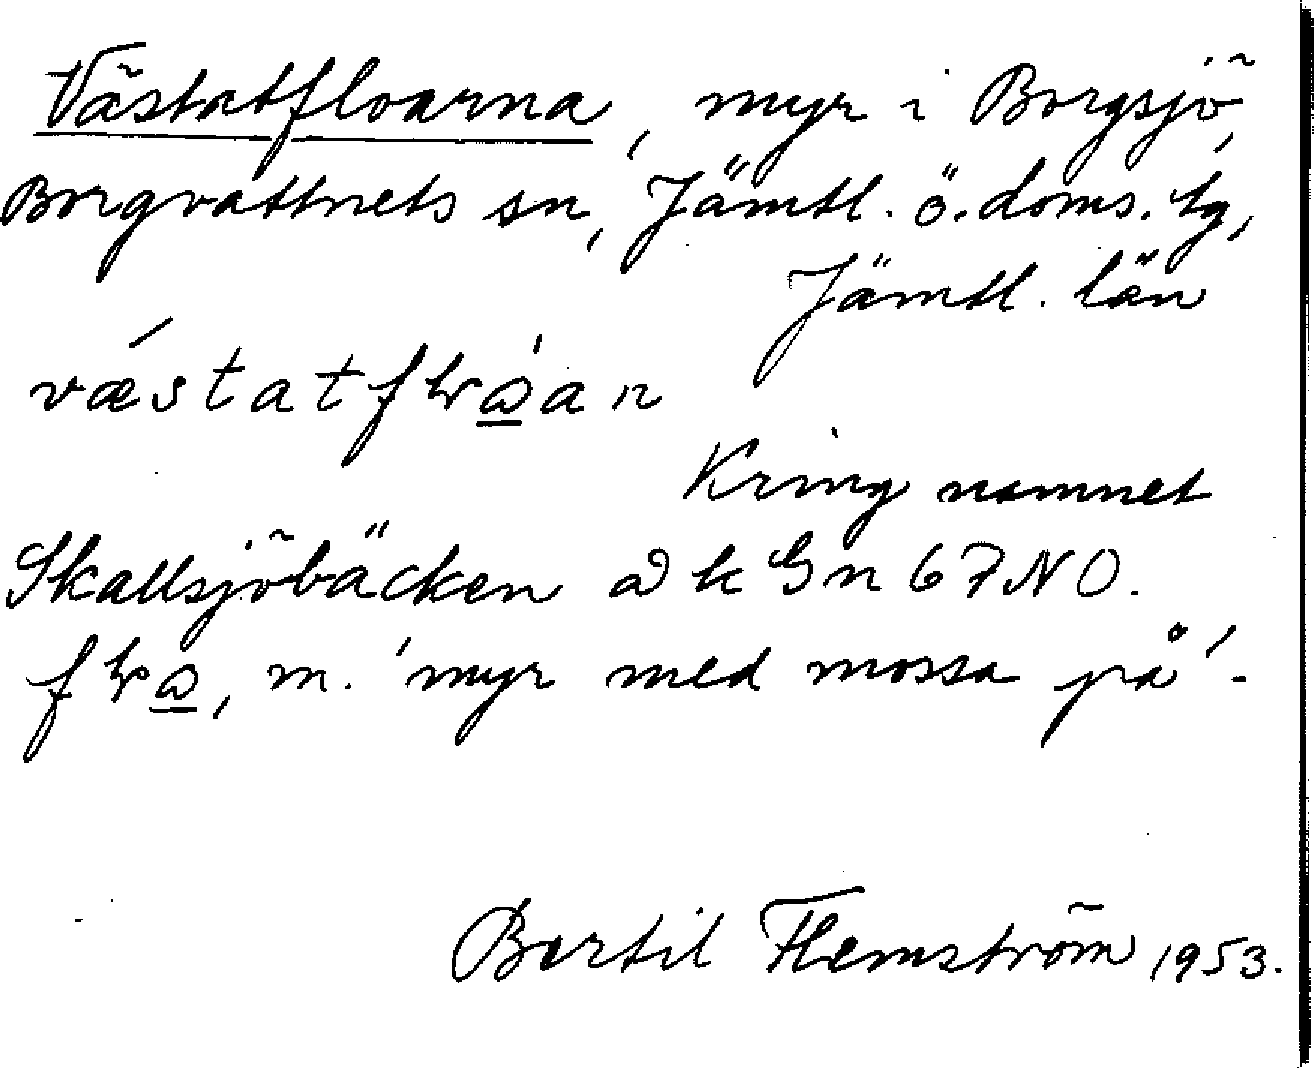 Västatfloarna, myr i Borgsjö,
Borgvattnets sn, Jämtl. ö. doms. tg,
Jämtl. län
Kring namnet
Skallsjöbäcken å k Gn 67 NO.
m. 'myr med mossa på'.
Bertil Flemström 1953.